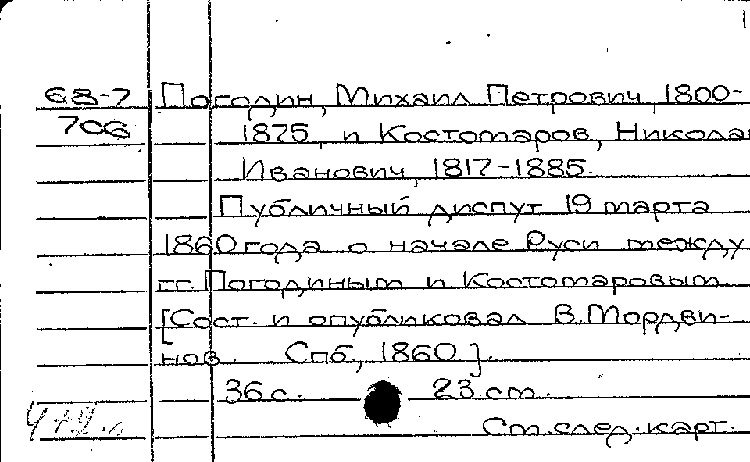 68-7 Погодин, Михаил Петрович, 1800-
706 1875, и Костомаров, Николай
Иванович, 1817-1885.
Публичный диспут 19 марта
1860 года о начале Руси между
гг. Погодиным и Костомаровым
[Сост. и опубликовал В. Мордви-
нов. Спб., 1860].
36 с. 23 cm.
См. след. карт.